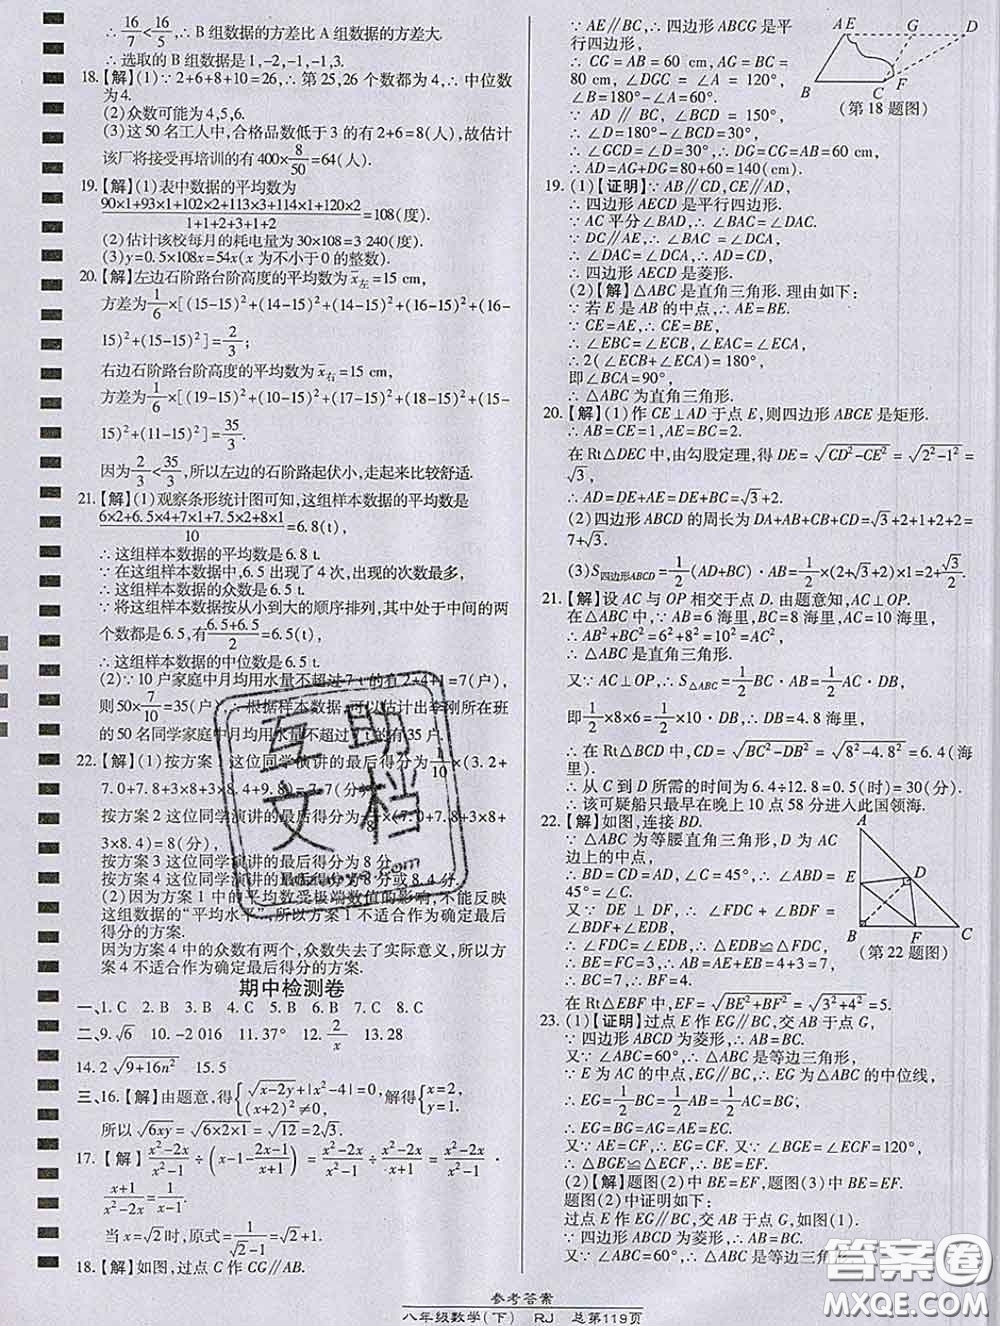 ∴ 16/7<16/5,∴B组数据的方差比A组数据的方差大.
∴选取的B组数据是1,-2,-1,-1,3.
18.【解】(1)∵2+6+8+10=26,∴第25,26个数都为4,∴中位数
为4.
(2)众数可能为4,5,6.
(3)这50名工人中,合格品数低于3的有2+6=8(人),故估计
该厂将接受再培训的有400×8/50=64(人).
19.【解】(1)表中数据的平均数为
(90×1+93×1+102×2+113×3+114×1+120×2)/(1+1+2+3+1+2)=108(度).
(2)估计该校每月的耗电量为30×108=3 240(度).
(3)y=0.5×108x=54x(x为不小于0的整数).
20.【解】左边石阶路台阶高度的平均数为x̄左=15 cm,
方差为1/6×[(15-15)²+(14-15)²+(14-15)²+(16-15)²+(16-
15)²+(15-15)²]=2/3;
右边石阶路台阶高度的平均数为x̄右=15 cm,
方差为1/6×[(19-15)²+(10-15)²+(17-15)²+(18-15)²+(15-
15)²+(11-15)²]=35/3.
因为2/3<35/3,所以左边的石阶路起伏小,走起来比较舒适.
21.【解】(1)观察条形统计图可知,这组样本数据的平均数是
(6×2+6.5×4+7×1+7.5×2+8×1)/10=6.8(t),
∴这组样本数据的平均数是6.8 t.
∵在这组样本数据中,6.5出现了4次,出现的次数最多,
∴这组样本数据的众数是6.5 t.
∵将这组样本数据按从小到大的顺序排列,其中处于中间的两
个数都是6.5,有(6.5+6.5)/2=6.5(t),
∴这组样本数据的中位数是6.5 t.
(2)∵10户家庭中月均用水量不超过7 t的有2+4+1=7(户),
50×7/10=35(户),∴根据样本数据,可以估计出李刚所在班
的50名同学家庭中月均用水量不超过7 t的有35户.
22.【解】(1)按方案1这位同学演讲的最后得分为1/10×(3.2+
7.0+7.8+3×8+3×8.4+9.8)=7.7(分);
按方案2这位同学演讲的最后得分为1/8×(7.0+7.8+3×8+
3×8.4)=8(分),
按方案3这位同学演讲的最后得分为8分,
按方案4这位同学演讲的最后得分为8分或8.4分.
(2)因为方案1中的平均数受极端数值的影响,不能反映
这组数据的“平均水平”,所以方案1不适合作为确定最后
得分的方案.
因为方案4中的众数有两个,众数失去了实际意义,所以方
案4不适合作为确定最后得分的方案.
期中检测卷
一、1.C 2.B 3.B 4.B 5.C 6.D 7.B 8.C
二、9.√6 10.-2 016 11.37° 12.2/x 13.28
14.2√(9+16n²) 15.5
三、16.【解】由题意,得{√(x-2y)+|x²-4|=0, (x+2)²≠0, 解得{x=2, y=1.
所以√(6xy)=√(6×2×1)=√12=2√3.
17.【解】(x²-2x)/(x²-1)÷(x-1-(2x-1)/(x+1))=(x²-2x)/(x²-1)÷(x²-2x)/(x+1)=(x²-2x)/(x²-1)·
(x+1)/(x²-2x)=1/(x-1).
当x=√2时,原式=1/(√2-1)=√2+1.
18.【解】如图,过点C作CG∥AB.
∵AE∥BC,∴四边形ABCG是平
行四边形,
∴CG=AB=60 cm,AG=BC=
80 cm,∠DGC=∠A=120°,
∠B=180°-∠A=60°.
∵AD∥BC,
∴∠D=180°-∠BCD=30°.
∴∠GCD=∠D=30°,∴DG=CG=AB=60 cm,
∴AD=AG+DG=80+60=140(cm).
A E G D
B C F
(第18题图)
19.(1)【证明】∵AB∥CD,CE∥AD,
∴四边形AECD是平行四边形.
∵AC平分∠BAD,∴∠BAC=∠DAC.
∵DC∥AE,∴∠BAC=∠DCA,
∴∠DAC=∠DCA,∴AD=CD,
∴四边形AECD是菱形.
(2)【解】△ABC是直角三角形.理由如下:
∵若E是AB的中点,∴AE=BE.
∵CE=AE,∴CE=BE,
∴∠EBC=∠ECB,∠EAC=∠ECA
∴2(∠ECB+∠ECA)=180°,
即∠BCA=90°,
∴△ABC为直角三角形.
20.【解】(1)作CE⊥AD于点E,则四边形ABCE是矩形.
∴AB=CE=1,AE=BC=2.
在Rt△DEC中,由勾股定理,得DE=√(CD²-CE²)=√(2²-1²)=
√3,
∴AD=AE+DE=√3+2.
(2)四边形ABCD的周长为DA+AB+CB+CD=√3+2+1+2+2=
7+√3.
(3)S四边形ABCD=1/2(AD+BC)·AB=1/2×(2+√3+2)×1=2+√3/2.
21.【解】设AC与OP相交于点D.由题意知,AC⊥OP.
在△ABC中,∵AB=6海里,BC=8海里,AC=10海里,
∴AB²+BC²=6²+8²=10²=AC²,
∴△ABC是直角三角形.
又∵AC⊥OP,∴S△ABC=1/2BC·AB=1/2AC·BD,
即1/2×8×6=1/2×10×BD,∴BD=4.8海里,
∴在Rt△BCD中,CD=√(BC²-DB²)=√(8²-4.8²)=6.4(海
里),
∴从C到D所需的时间为6.4÷12.8=0.5(时)=30(分).
∴该可疑船只最早在晚上10点58分进入此国领海.
22.【解】如图,连接BD.
∵△ABC为等腰直角三角形,D为AC
边上的中点,
∴BD=CD=AD,∠BDC=90°,∠ABD=
45°=∠C.
又∵DE⊥DF,∴∠FDC+∠BDF=
∠EDB+∠BDF,∴∠FDC=∠EDB,
∴∠FDC=∠EDB,∴△EDB≌△FDC,
∴BE=FC=3,∴AB=7,
∴BC=7,∴BF=4.
在Rt△EBF中,EF=√(BE²+BF²)=√(3²+4²)=5.
A
E D
B F C
(第22题图)
23.(1)【证明】过点E作EG∥BC,交AB于点G,
∵四边形ABCD为菱形,∴AB=BC.
又∵∠ABC=60°,∴△ABC是等边三角形,
∵E为AC的中点,∴EG是△ABC的中位线,
∴EG=1/2BC=1/2AB=1/2AC,
∴EG=BG=AG=AE=EC.
又∵AE=CF,∴EG=CF.又∵∠BGE=∠ECF=120°,
∴△BGE≌△ECF,∴BE=EF.
(2)【解】题图(2)中BE=EF,题图(3)中BE=EF.
题图(2)中证明如下:
过点E作EG∥BC,交AB于点G,如图(1).
∵四边形ABCD为菱形,∴AB=BC.
又∵∠ABC=60°,∴△ABC是等边三角形.
互助
文档
参考答案
八年级数学(下) RJ 总第119页
答案圈
MXQE.COM